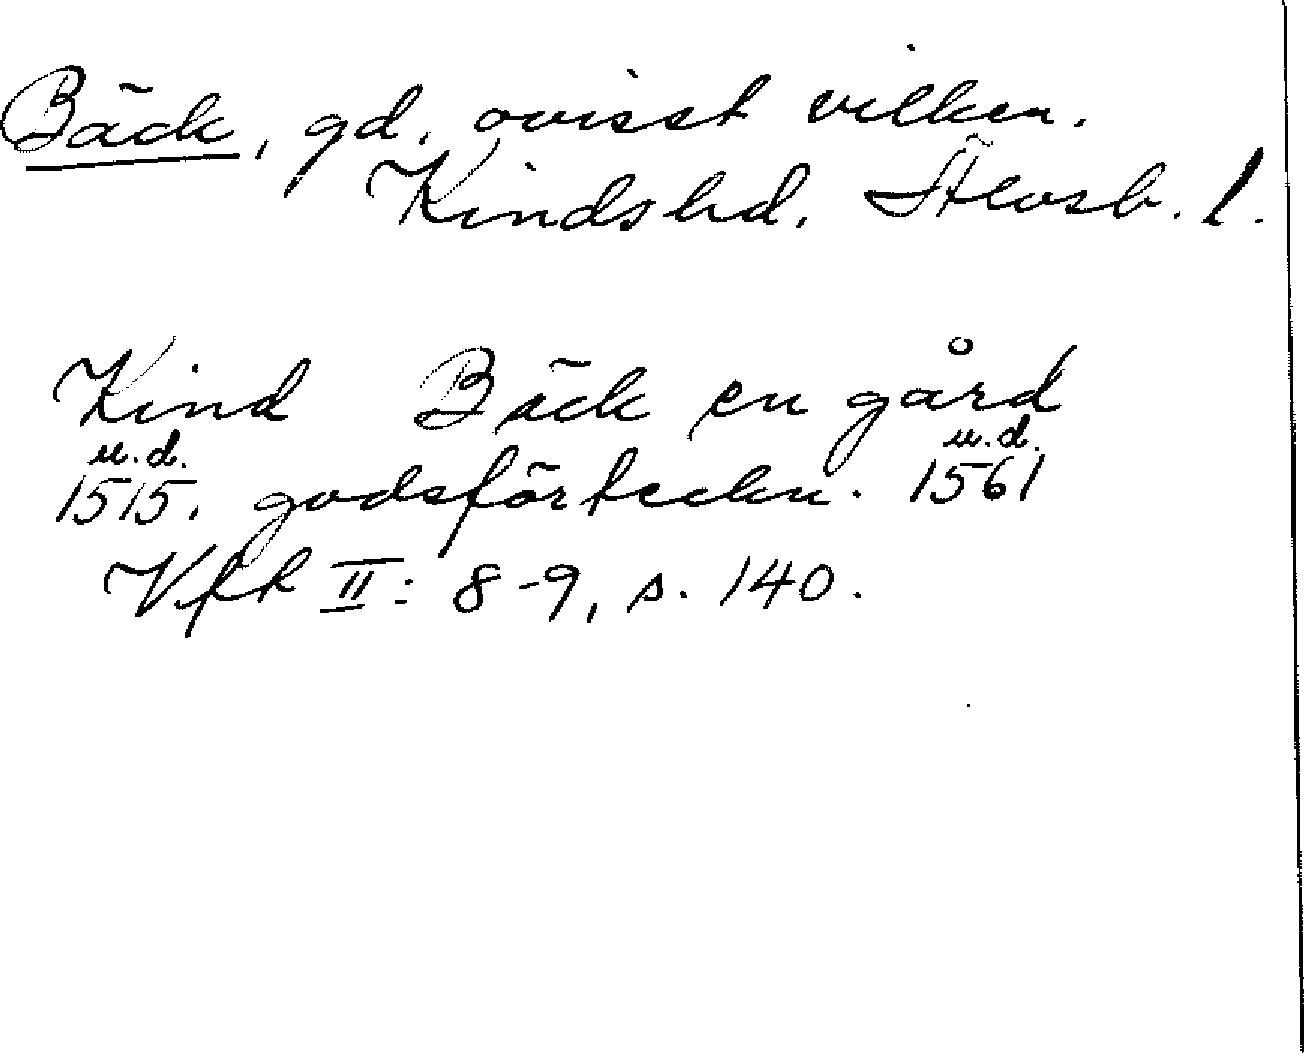 Bäck, gd. ovisst vilken.
Kinds hd. Älvsb. l.
Kind Bäck en gård
u.d. u.d.
1515. godsförteckn. 1561
Vfth II: 8-9, s. 140.